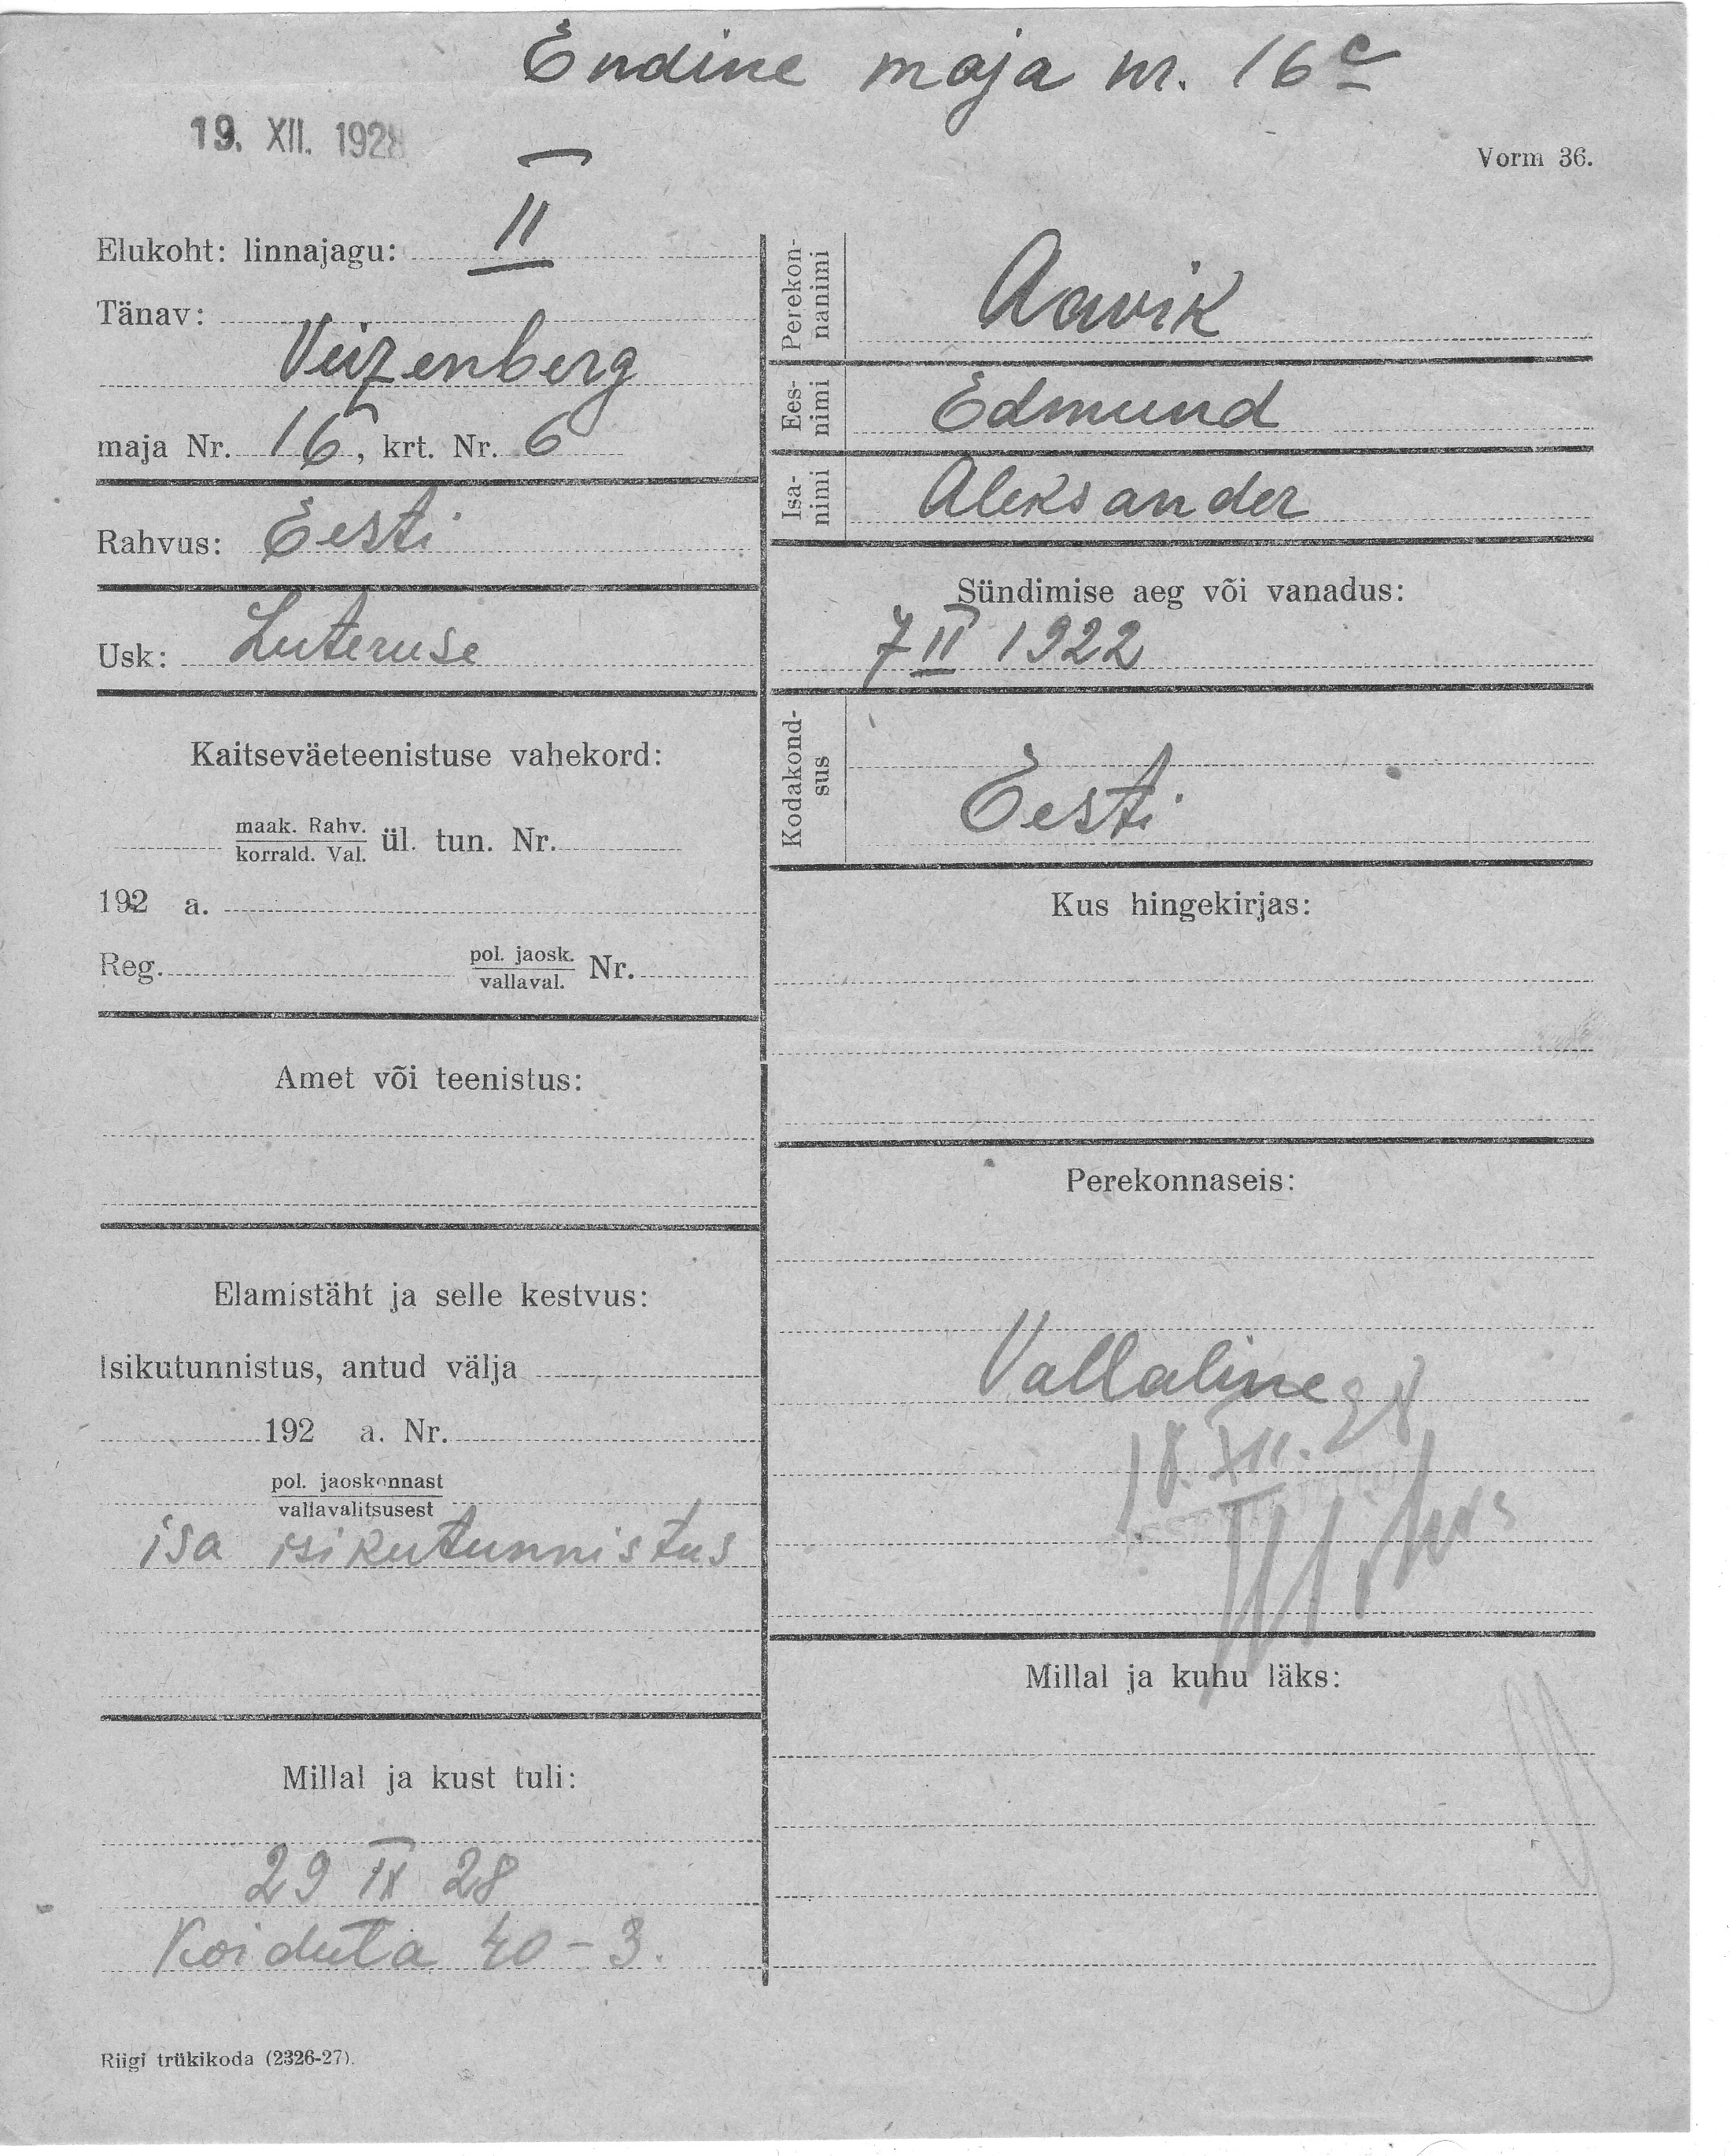 Endine maja nr. 16c
19. XII. 1928
Vorm 36.
Elukoht: linnajagu: II
Tänav:
Veizenberg
maja Nr. 16, krt. Nr. 6
Rahvus: Eesti
Usk: Luteruse
Kaitseväeteenistuse vahekord:
maak. Rahv.
korrald. Val. ül. tun. Nr.
192 a.
Reg. pol. jaosk.
vallaval. Nr.
Amet või teenistus:
Elamistäht ja selle kestvus:
Isikutunnistus, antud välja
192 a. Nr.
pol. jaoskonnast
vallavalitsusest
isa isikutunnistus
Millal ja kust tuli:
29 IX 28
Koidula 40-3.
Riigi trükikoda (2326-27).
Perekon-
nanimi
Aavik
Ees-
nimi
Edmund
Isa-
nimi
Aleksander
Sündimise aeg või vanadus:
7 II 1922
Kodakond-
sus
Eesti
Kus hingekirjas:
Perekonnaseis:
Vallaline
18. XII. 28
Millal ja kuhu läks: